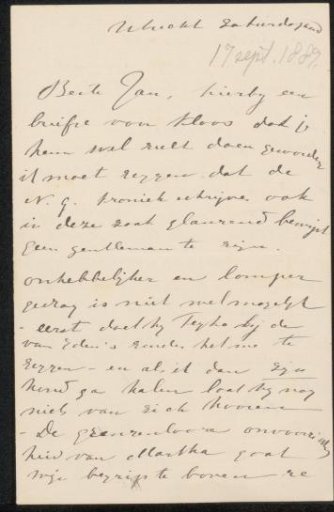 Utrecht Zaterdagav
17 sept. 1887
Beste Jan, hierbij een
briefje voor Kloos dat je
hem wel zult doen geworden
ik moet zeggen dat de
N. G. kroniekschrijver ook
in deze zaak glansrend bewijst
geen gentleman te zijn.
onhebbelijker en lomper
gedrag is niet wel mogelijk
- eerst dacht hij
van Eden's zonder het me te
zeggen - en als ik dan zijn
hond ga halen laat hij nog
niets van zich hooren
- De grenzenloze
heid van Martha gaat
mijn begrip te boven